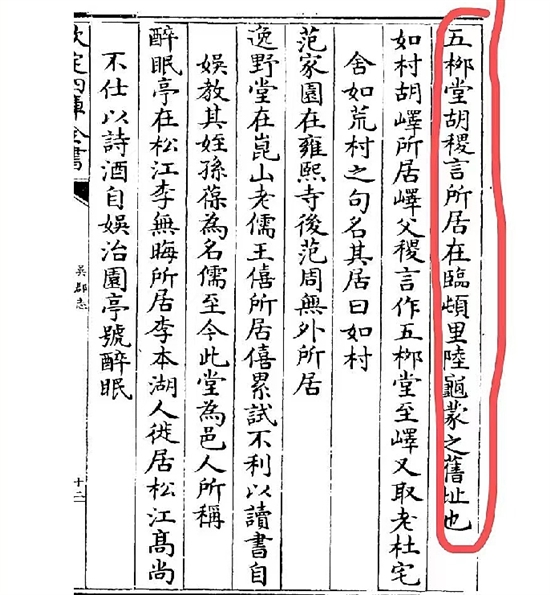 五栁堂胡稷言所居在臨頓里陸龜蒙之舊址也
如村胡嶧所居嶧父稷言作五栁堂至嶧又取老杜宅
舍如荒村之句名其居曰如村
范家園在雍熙寺後范周無外所居
逸野堂在崑山老儒王僖所居僖累試不利以讀書自
娱教其姪孫葆為名儒至今此堂為邑人所稱
醉眠亭在松江李無晦所居李本湖人徙居松江髙尚
不仕以詩酒自娱治園亭號醉眠
欽定四庫全書
吳郡志
十二